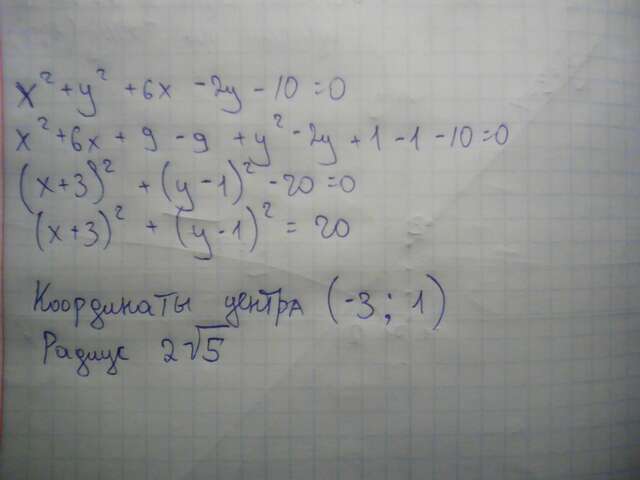 x² + y² + 6x - 2y - 10 = 0
x² + 6x + 9 - 9 + y² - 2y + 1 - 1 - 10 = 0
(x+3)² + (y-1)² - 20 = 0
(x+3)² + (y-1)² = 20
Координаты центра (-3; 1)
Радиус 2√5